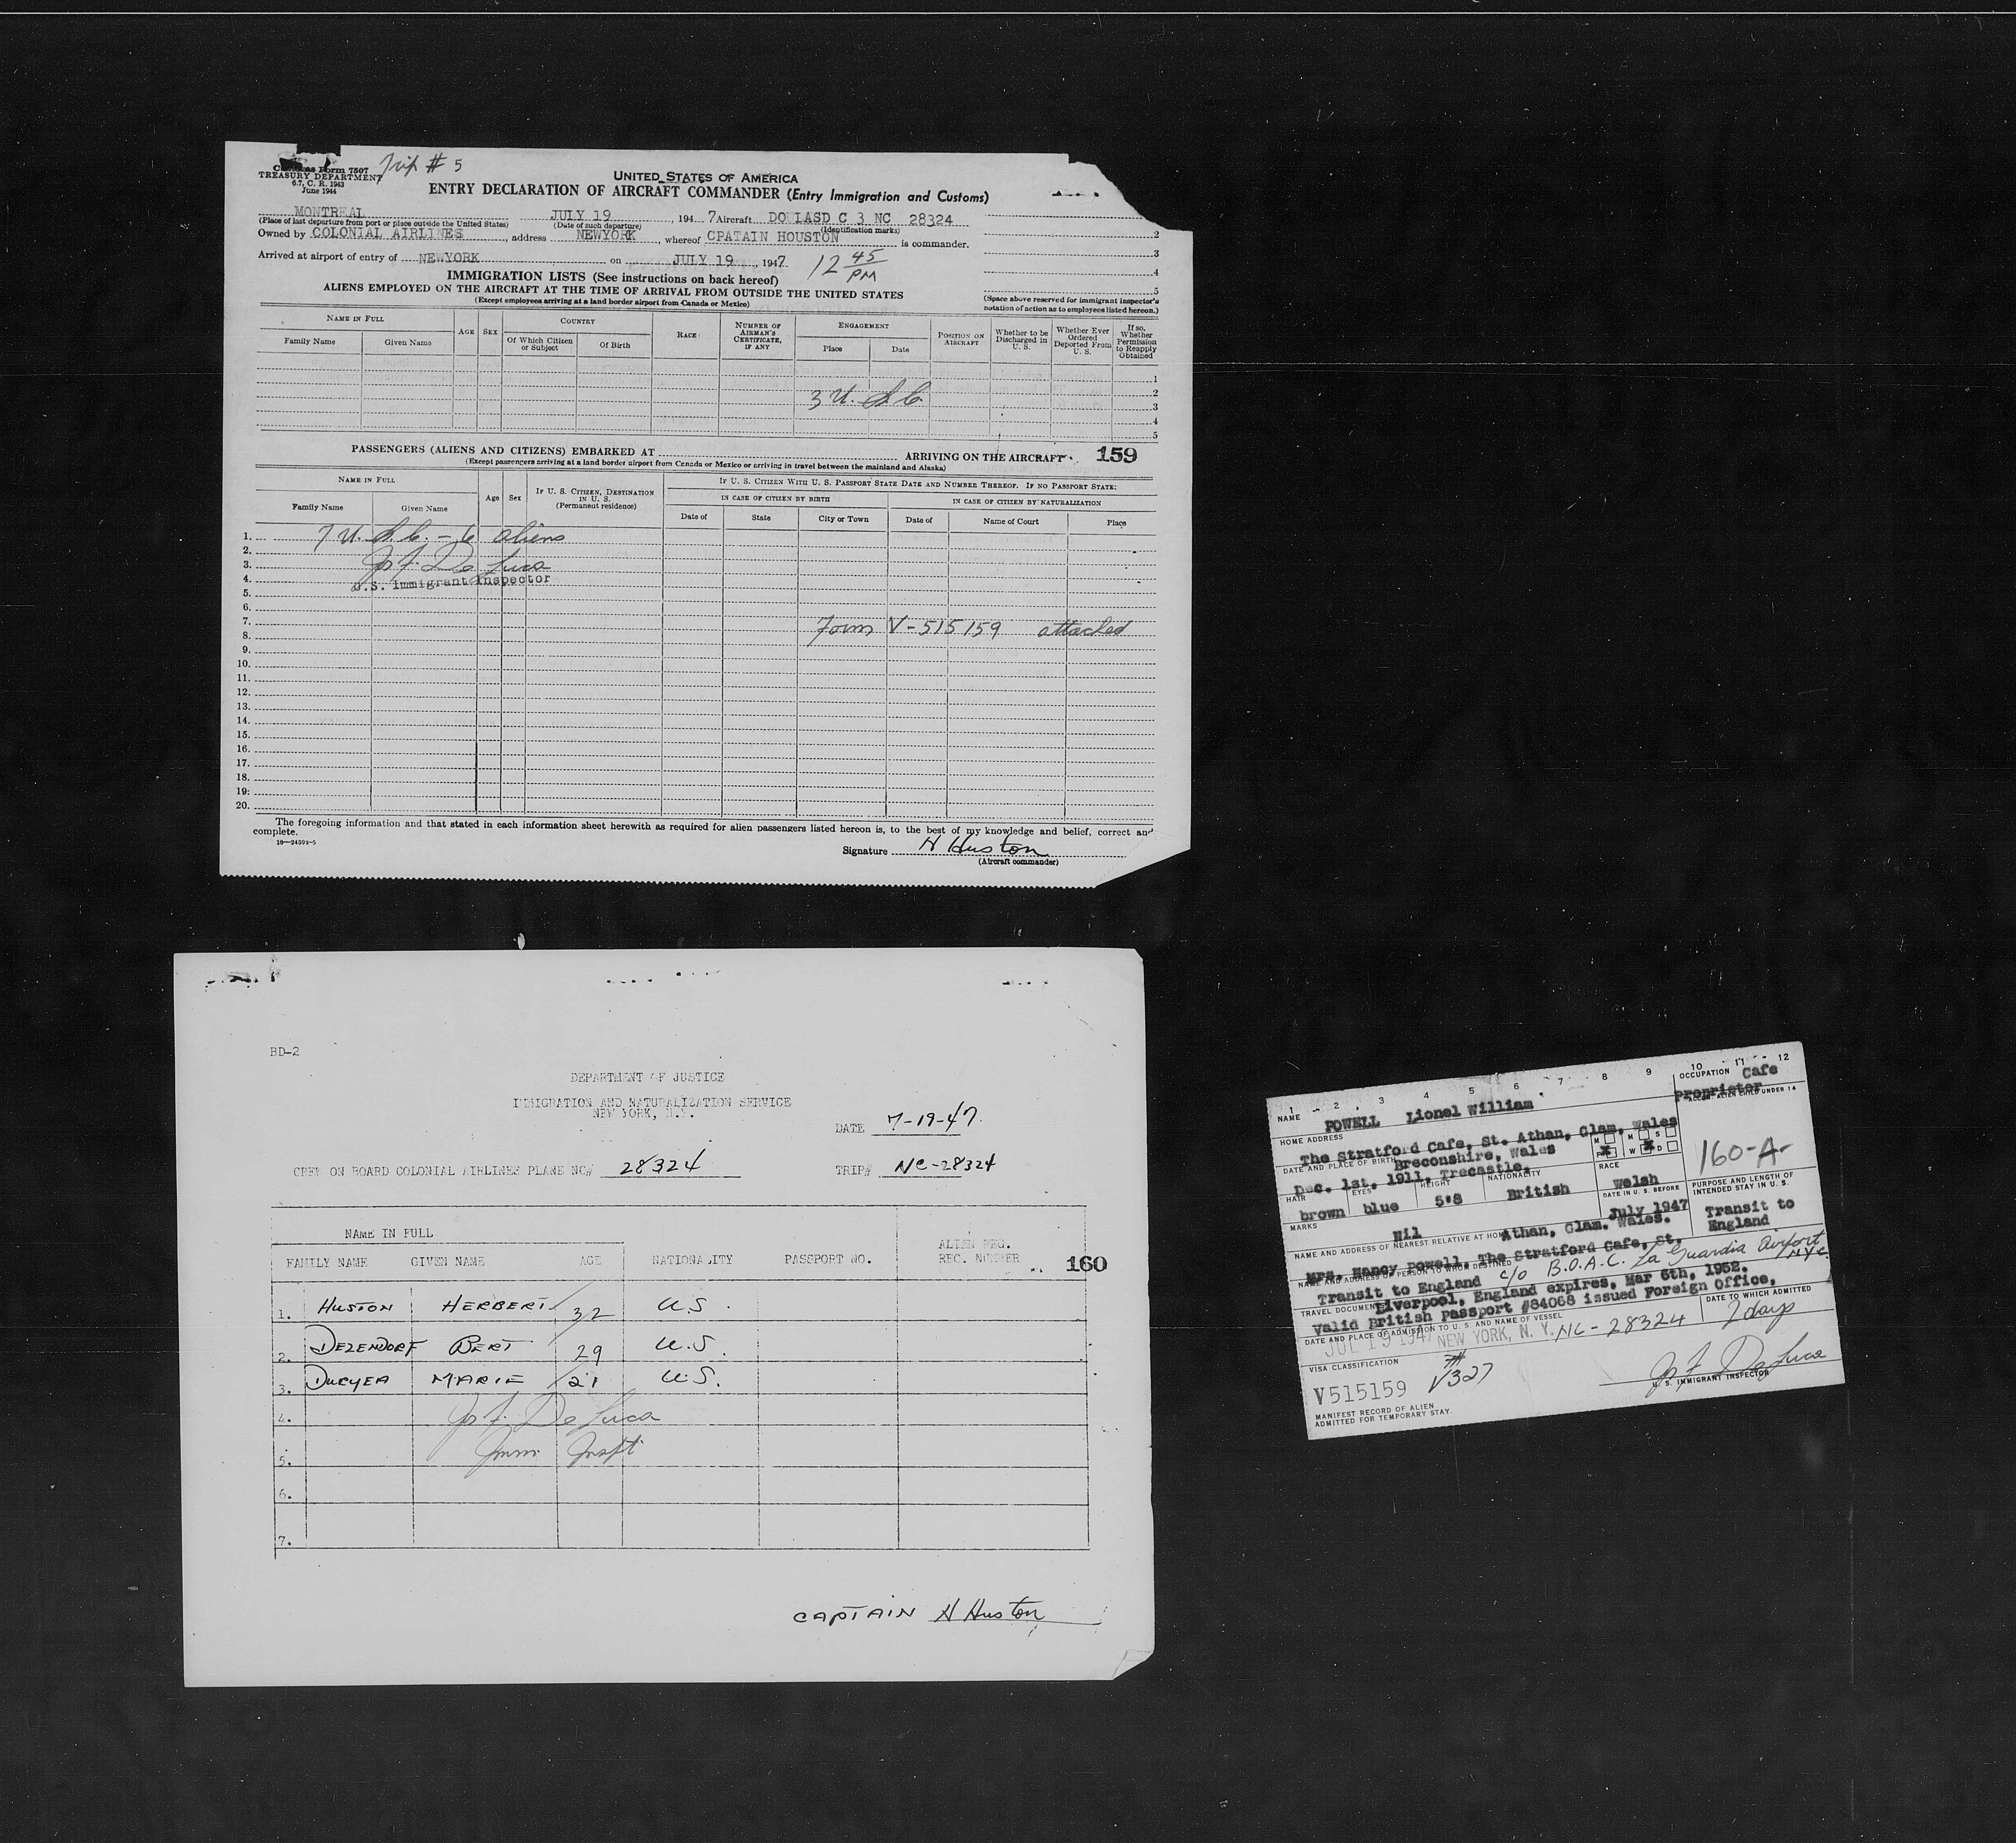 Customs Form 7507
TREASURY DEPARTMENT
6.7, C. R. 1943
June 1944
Trip # 5
UNITED STATES OF AMERICA
ENTRY DECLARATION OF AIRCRAFT COMMANDER (Entry Immigration and Customs)
MONTREAL JULY 19, 1947 Aircraft C 3 NC 28324
(Place of last departure from port or place outside the United States) (Date of such departure) (Identification marks)
Owned by COLONIAL AIRLINES, address NEWYORK, whereof CPATAIN HOUSTON is commander.
Arrived at airport of entry of NEWYORK on JULY 19, 1947 12 45 PM
2
3
4
5
(Space above reserved for immigrant inspector's notation of action as to employees listed hereon.)
IMMIGRATION LISTS (See instructions on back hereof)
ALIENS EMPLOYED ON THE AIRCRAFT AT THE TIME OF ARRIVAL FROM OUTSIDE THE UNITED STATES
(Except employees arriving at a land border airport from Canada or Mexico)
NAME IN FULL AGE SEX COUNTRY RACE NUMBER OF AIRMAN'S CERTIFICATE, IF ANY ENGAGEMENT POSITION ON AIRCRAFT Whether to be Discharged in U. S. Whether Ever Ordered Deported From U. S. If so, Whether Permission to Reapply Obtained
Family Name Given Name Of Which Citizen or Subject Of Birth Place Date
1
2
3 U. S. C.
3
4
5
PASSENGERS (ALIENS AND CITIZENS) EMBARKED AT ARRIVING ON THE AIRCRAFT 159
(Except passengers arriving at a land border airport from Canada or Mexico or arriving in travel between the mainland and Alaska)
NAME IN FULL Age Sex IF U. S. CITIZEN, DESTINATION IN U. S. (Permanent residence) IF U. S. CITIZEN WITH U. S. PASSPORT STATE DATE AND NUMBER THEREOF. IF NO PASSPORT STATE:
IN CASE OF CITIZEN BY BIRTH IN CASE OF CITIZEN BY NATURALIZATION
Family Name Given Name Date of State City or Town Date of Name of Court Place
1. 7 U. S. C. - 6 aliens
2.
3. Jos F. De Luca
4. U.S. Immigrant Inspector
5.
6.
7. Form V-515159 attached
8.
9.
10.
11.
12.
13.
14.
15.
16.
17.
18.
19.
20.
The foregoing information and that stated in each information sheet herewith as required for alien passengers listed hereon is, to the best of my knowledge and belief, correct and
complete.
Signature H Huston
(Aircraft commander)
BD-2
DEPARTMENT OF JUSTICE
IMMIGRATION AND NATURALIZATION SERVICE
NEW YORK, N.Y.
DATE 7-19-47
CREW ON BOARD COLONIAL AIRLINES PLANE NC# 28324 TRIP# NC-28324
NAME IN FULL
FAMILY NAME GIVEN NAME AGE NATIONALITY PASSPORT NO. ALIEN REG. REG. NUMBER 160
1. HUSTON HERBERT 32 U.S.
2. DEZENDORF BERT 29 U.S.
3. MARIE 21 U.S.
4. Jos F. De Luca
5. Imm Inspt
6.
7.
CAPTAIN H Huston
1 2 3 4 5 6 7 8 9 10 11 12
NAME POWELL Lionel William OCCUPATION Cafe proprietor
HOME ADDRESS The Stratford Cafe, St. Athan, Glam, Wales
ACCOMP. ALIEN CHILD UNDER 14
160-A-
DATE AND PLACE OF BIRTH Breconshire, Wales
Dec. 1st, 1911, Trecastle, M F X M W X S D
HAIR brown EYES blue HEIGHT 5'8 NATIONALITY British RACE Welsh
PURPOSE AND LENGTH OF INTENDED STAY IN U. S. Transit to England
MARKS Nil DATE IN U. S. BEFORE July 1947
NAME AND ADDRESS OF NEAREST RELATIVE AT HOME Athan, Glam. Wales.
Mrs. Nancy Powell, The Stratford Cafe, St.
NAME AND ADDRESS OF PERSON TO WHOM DESTINED
Transit to England c/o B.O.A.C. La Guardia Airport NYC
TRAVEL DOCUMENTS Liverpool, England expires, Mar 6th, 1952.
Valid British Passport #84068 issued Foreign Office,
DATE AND PLACE OF ADMISSION TO U. S. AND NAME OF VESSEL DATE TO WHICH ADMITTED
JUL 19 1947 NEW YORK, N. Y. NC-28324 2 days
VISA CLASSIFICATION
V515159 V327
Jos F. De Luca
U. S. IMMIGRANT INSPECTOR
MANIFEST RECORD OF ALIEN
ADMITTED FOR TEMPORARY STAY.